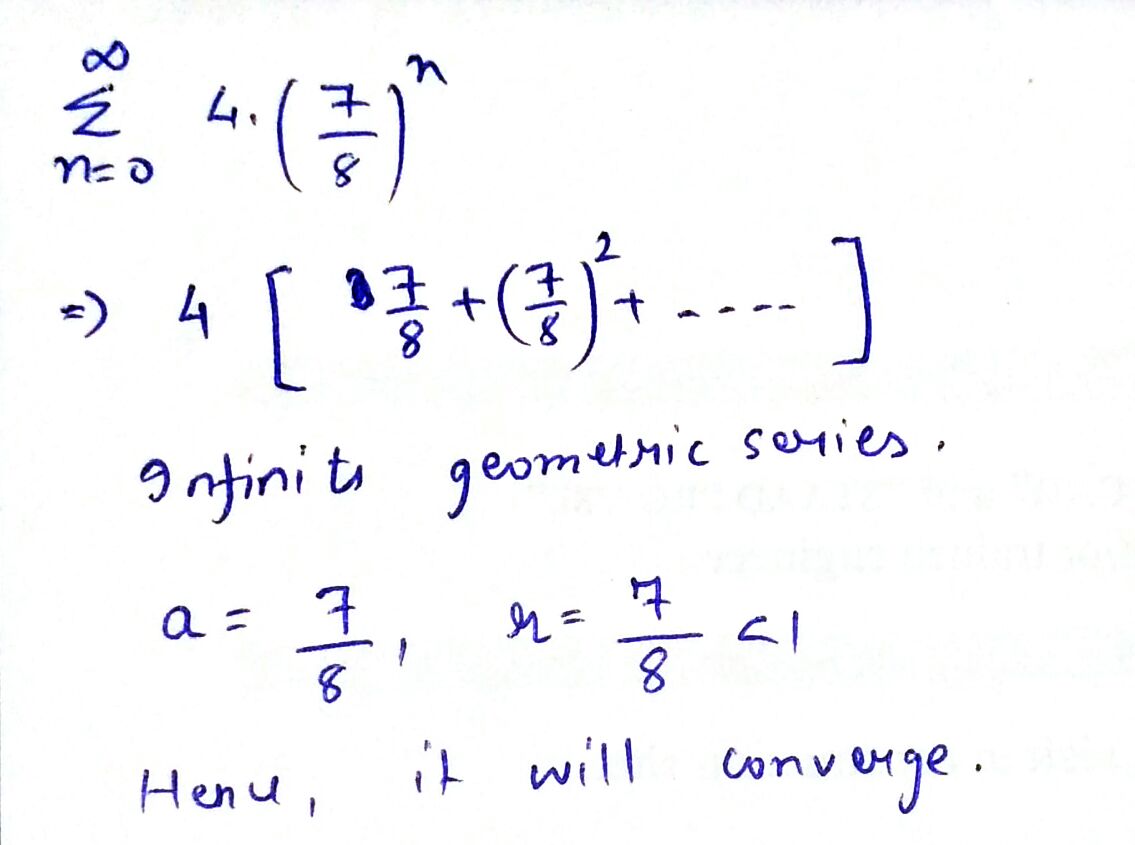 ∞
Σ 4. (7/8)^n
n=0
=) 4 [ 7/8 + (7/8)^2 + ---- ]
Infinite geometric series.
a = 7/8, r = 7/8 <1
Hence, it will converge.